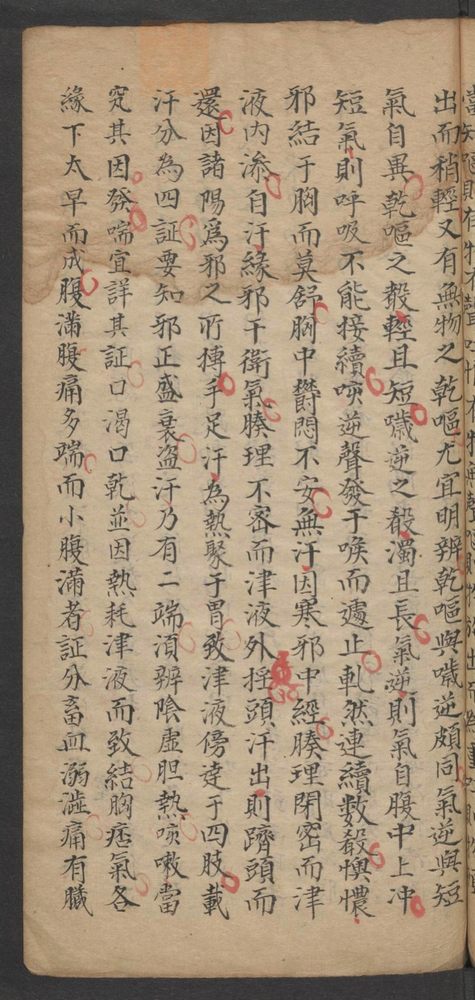 出而稍輕又有無物之乾嘔尤宜明辨乾嘔與噦逆頗同氣逆與短
氣自異乾嘔之殽輕且短噦逆之殽濁且長氣逆則氣自腹中上冲
短氣則呼吸不能接續咳逆聲發于喉而遽止軋然連續數殽懊憹
邪結于胸而莫舒胸中欝悶不安無汗因寒邪中經腠理閉密而津
液内滲自汗緣邪干衛氣腠理不密而津液外揺頭汗出則躋頭而
還因諸陽爲邪之所搏手足汗為熱聚于胃致津液傍達于四肢載
汗分為四証要知邪正盛衰盗汗乃有二端湏辨陰虛胆熱咳嗽當
究其因發喘宜詳其証口渴口乾並因熱耗津液而致結胸痞氣各
緣下太早而成腹滿腹痛多端而小腹滿者証分畜血溺澁痛有臓